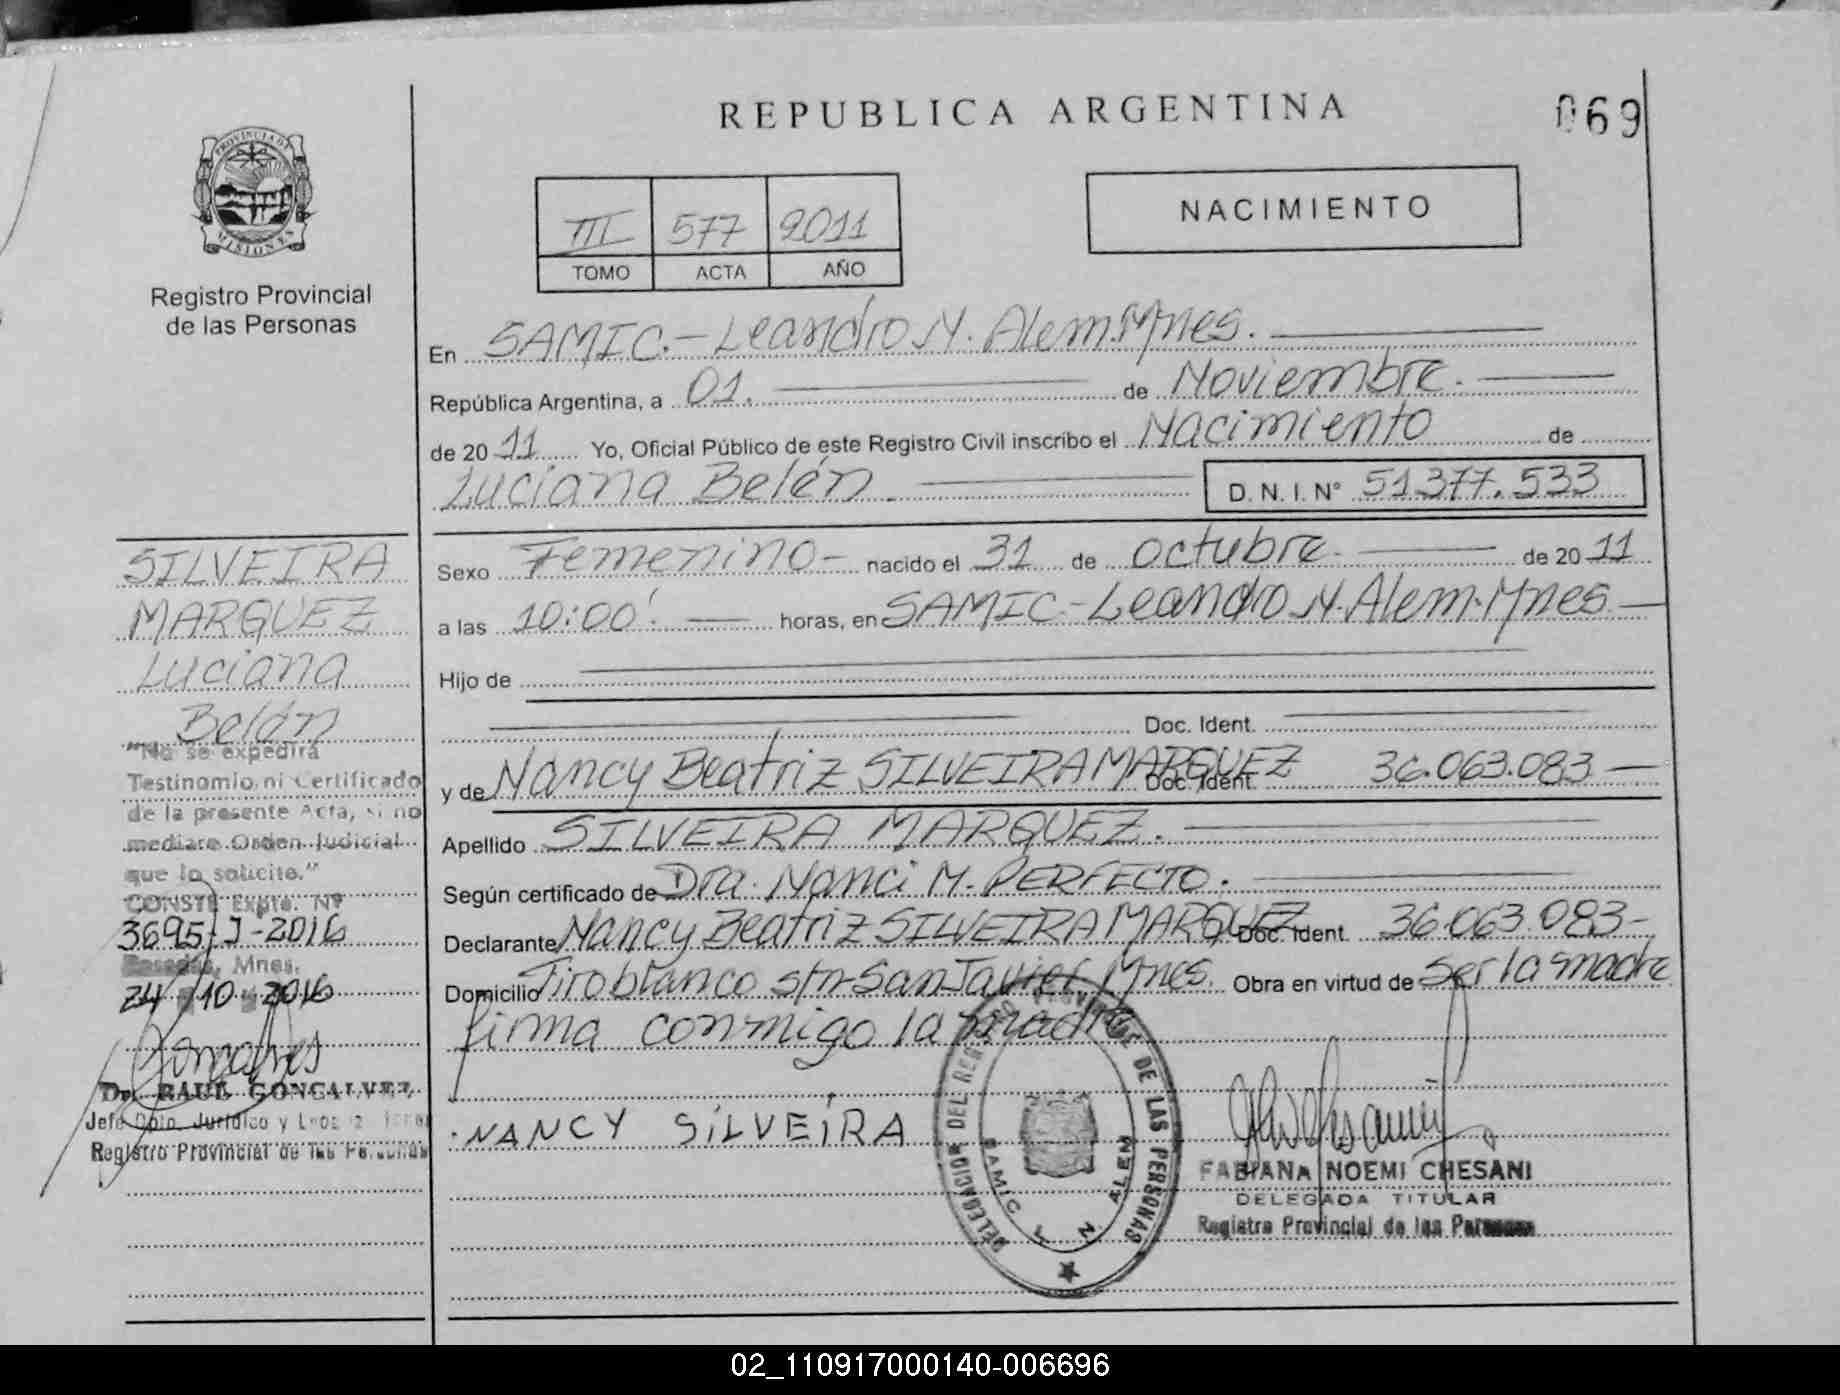 REPUBLICA ARGENTINA
069
PROVINCIA DE
MISIONES
Registro Provincial
de las Personas
III 577 2011
TOMO ACTA AÑO
NACIMIENTO
En SAMIC.- Leandro N. Alem. Mnes.
República Argentina, a 01. de Noviembre.
de 20 11 Yo, Oficial Público de este Registro Civil inscribo el Nacimiento de
Luciana Belén D. N. I. N° 51.377.533
Sexo Femenino- nacido el 31 de octubre. de 20 11
a las 10:00' horas, en SAMIC.- Leandro N. Alem. Mnes.
Hijo de
Doc. Ident.
y de Nancy Beatriz SILVEIRA MARQUEZ Doc. Ident. 36.063.083
Apellido SILVEIRA MARQUEZ.
Según certificado de Dra. Nanci M. PERFECTO.
Declarante Nancy Beatriz SILVEIRA MARQUEZ Doc. Ident. 36.063.083-
Domicilio Tiro blanco s/n- San Javier Mnes. Obra en virtud de ser la madre
firma conmigo la madre
NANCY SILVEIRA
DELEGACION DEL REGISTRO PROVINCIAL DE LAS PERSONAS
SAMIC L. N. ALEM
FABIANA NOEMI CHESANI
DELEGADA TITULAR
Registro Provincial de las Personas
SILVEIRA
MARQUEZ
Luciana
Belén
"No se expedirá
Testinomio, ni Certificado
de la presente Acta, si no
mediare Orden Judicial
que lo solicite."
CONSTE Expte. Nº
3695-J-2016
Posadas, Mnes.
24/10 2016
Dr. RAUL GONCALVEZ
Jefe Dpto. Jurídico y
Registro Provincial de las Personas
02_110917000140-006696